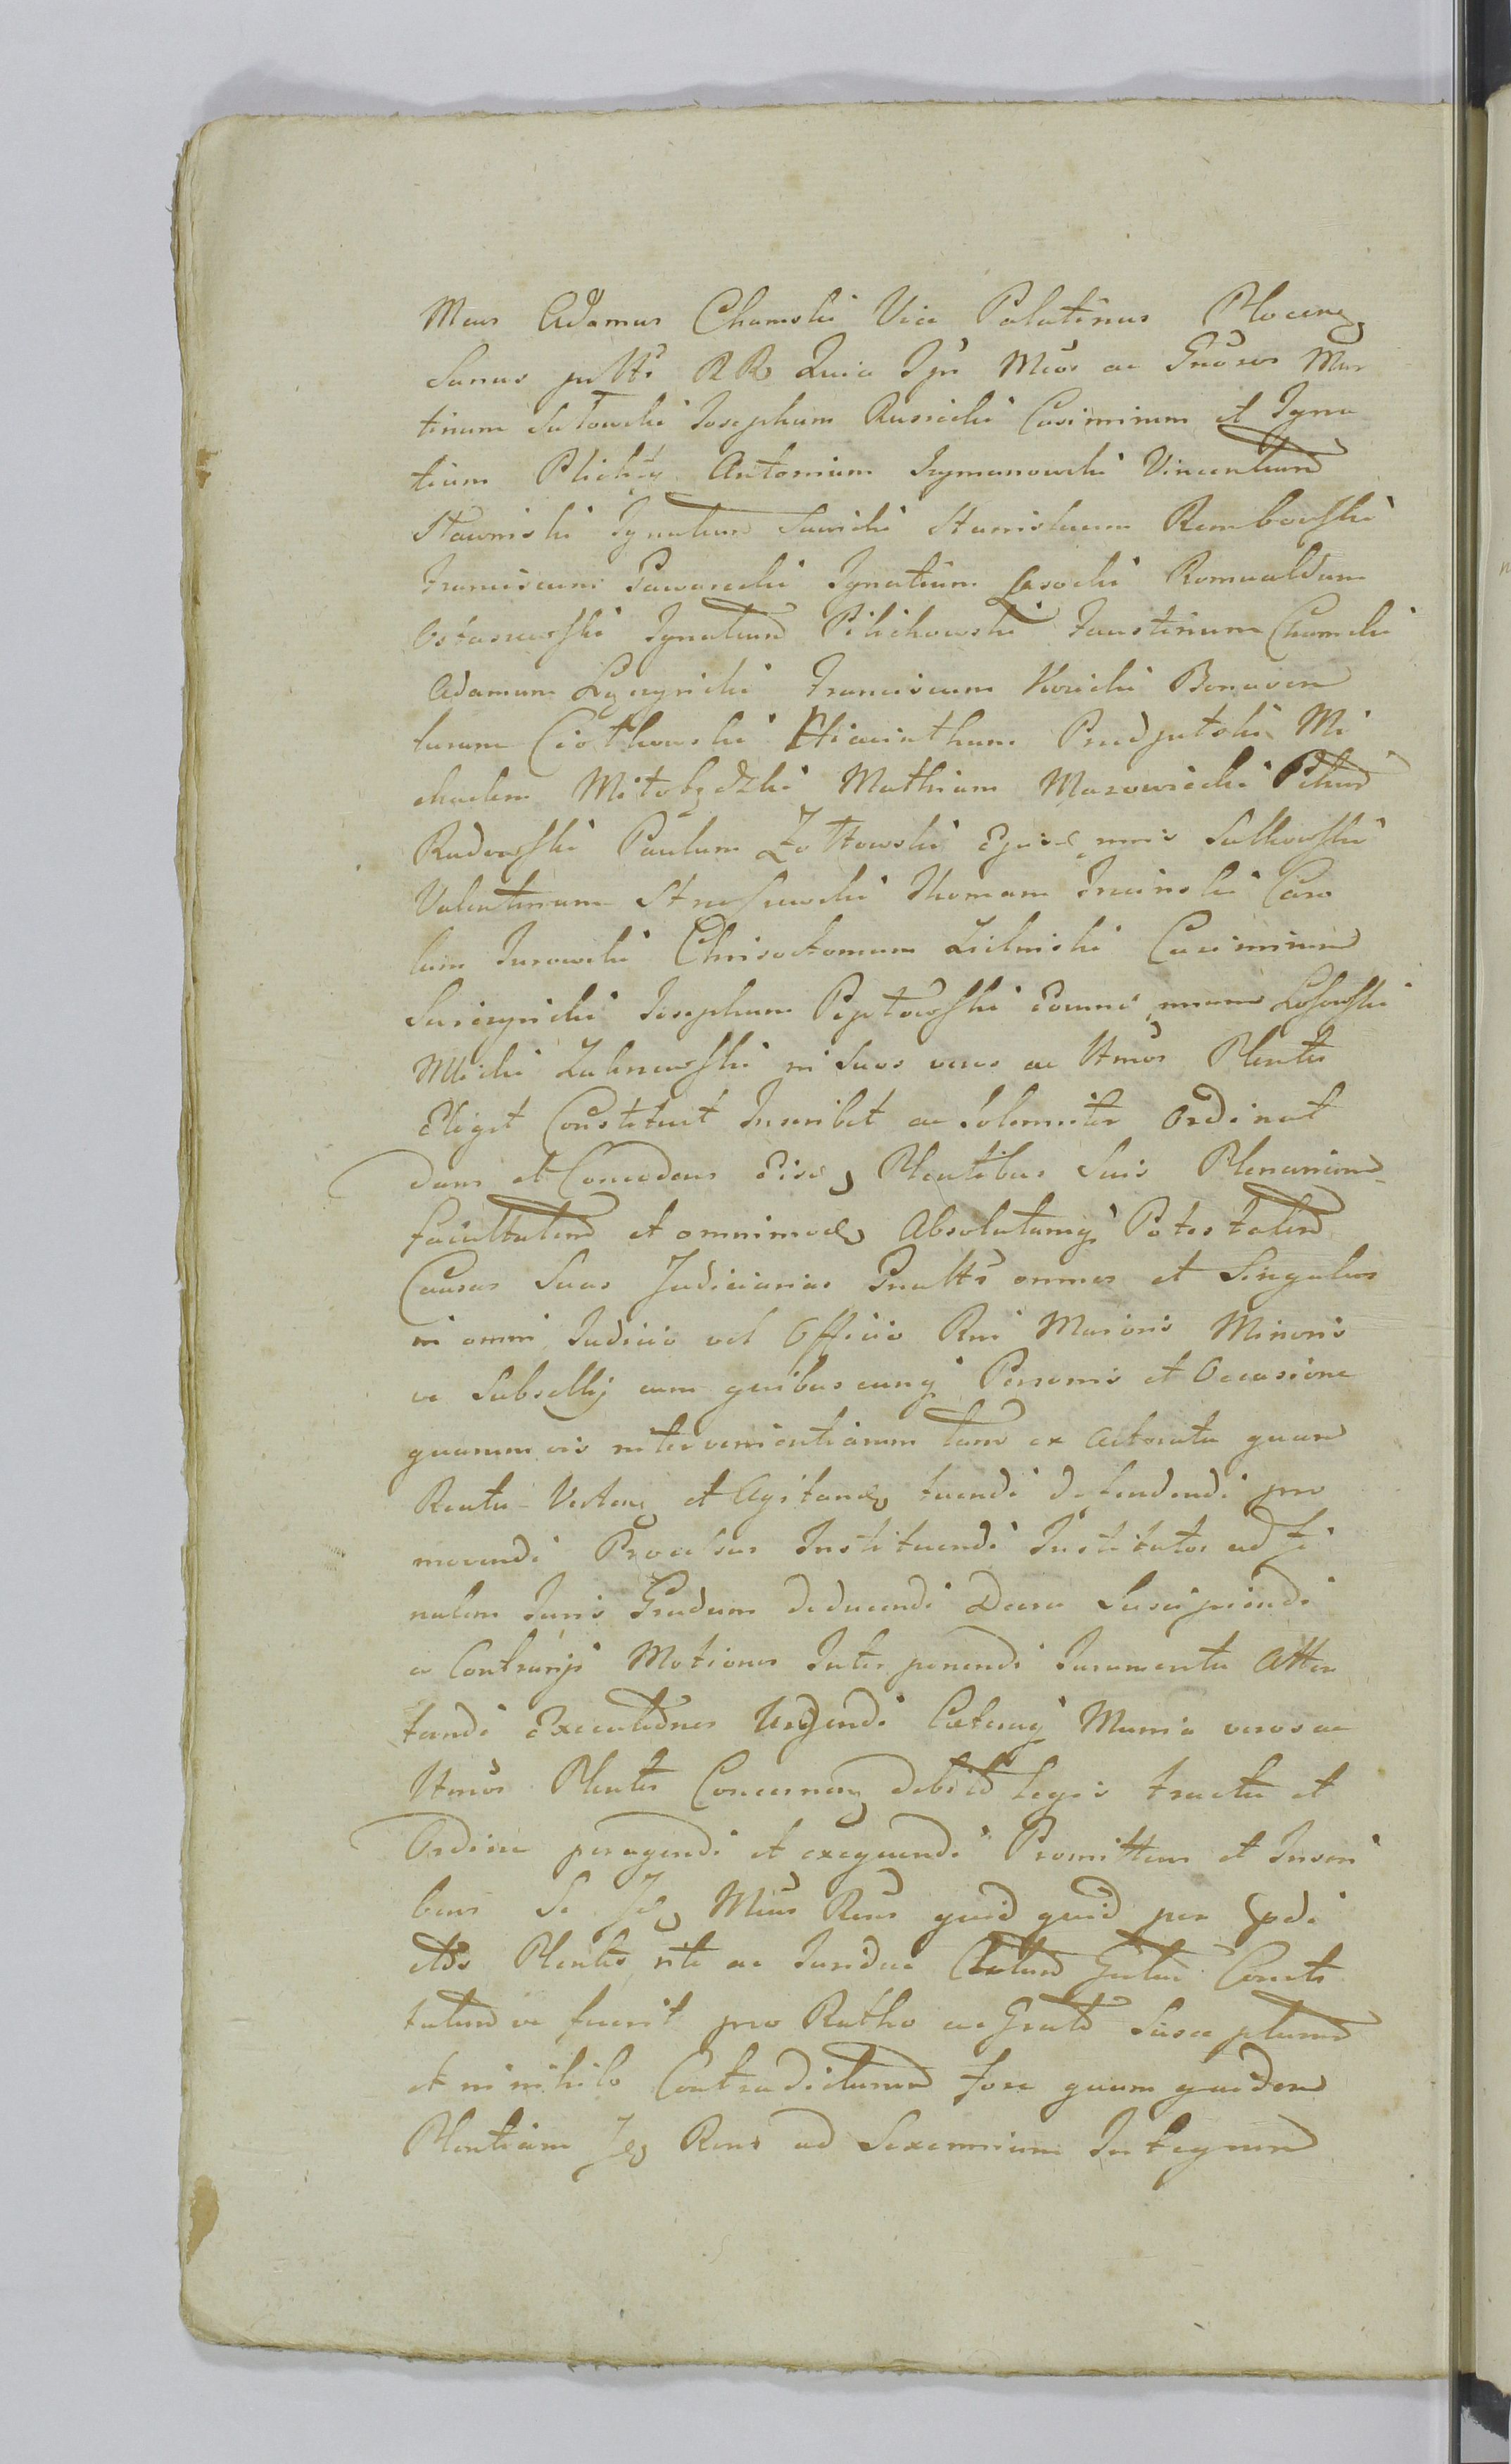 Mcus Adamus Chamski Vice Palatinus Plocen
Sanus pntti RR Quia Ipse Mcos ac Gnosos Mar
tinum Sutowski Josephum Rusiecki Casimirum et Igna
tium Plichty Antonium Szymanowski Vincentium
Stawiski Ignatium Sawicki Stanislaum Rembowski
Franciscum Ignatium Lasocki Romualdum
Ostaszewski Ignatium Pilichowski Faustinum Chamski
Adamum Franciscum Bonaven
turam Ciolkowski Hiacinthum Mi
chaelem Mathiam Mazowiecki
Radomski Paulum Zołtowski Sulkowski
Valentinum Thomam Caro
lum Jurowski Chrisostomum Zielinski Casimirum
Josephum
in suos veros ac Ltmos Plentes
Eligit Constituit Inscribit ac Solemniter Ordinat
Dans et Concedens Eisd Plentibus Suis Plenariam
facultatem et omnimod Absolutamq Potestatem
Causas Suas Judiciarias omnes et Singulas
in omni Judicio vel Officio Rni Maioris Minoris
ve Subsellij cum quibuscunq Personis et Occasione
quarumvis intervenientiarum tam ex Actoratu quam
Reatu Verten et Agitand tuendi defendendi pro
movendi Processus Instituendi Institutos ad fi
nalem Juris Gradum deducendi Decreta Suscipiendi
a Contrarijs Motiones Interponendi Juramenta Atten
tandi Executiones Urgendi Caeteraq Munia veros ac
Ltmos Plentes Concernen debito Legis tractu et
Ordine peragendi et exequendi Promittens et Inscri
bens Se Id Mcus Rens quid quid per
Plentes rite ac Juridice Actum Gestum Consti
tutum ve fuerit pro Ratho ac Grato Suscepturum
et in nihilo Contradicturum fore quam quidem
Plentiam Id Rens ad Sexennium Integrum